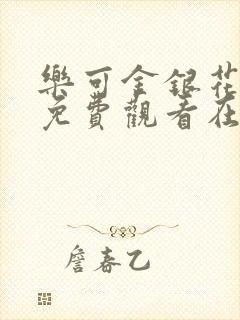 樂可金銀花
免費觀看在
詹春乙